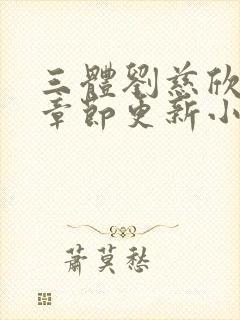 三體劉慈欣
章節更新小
蕭莫愁